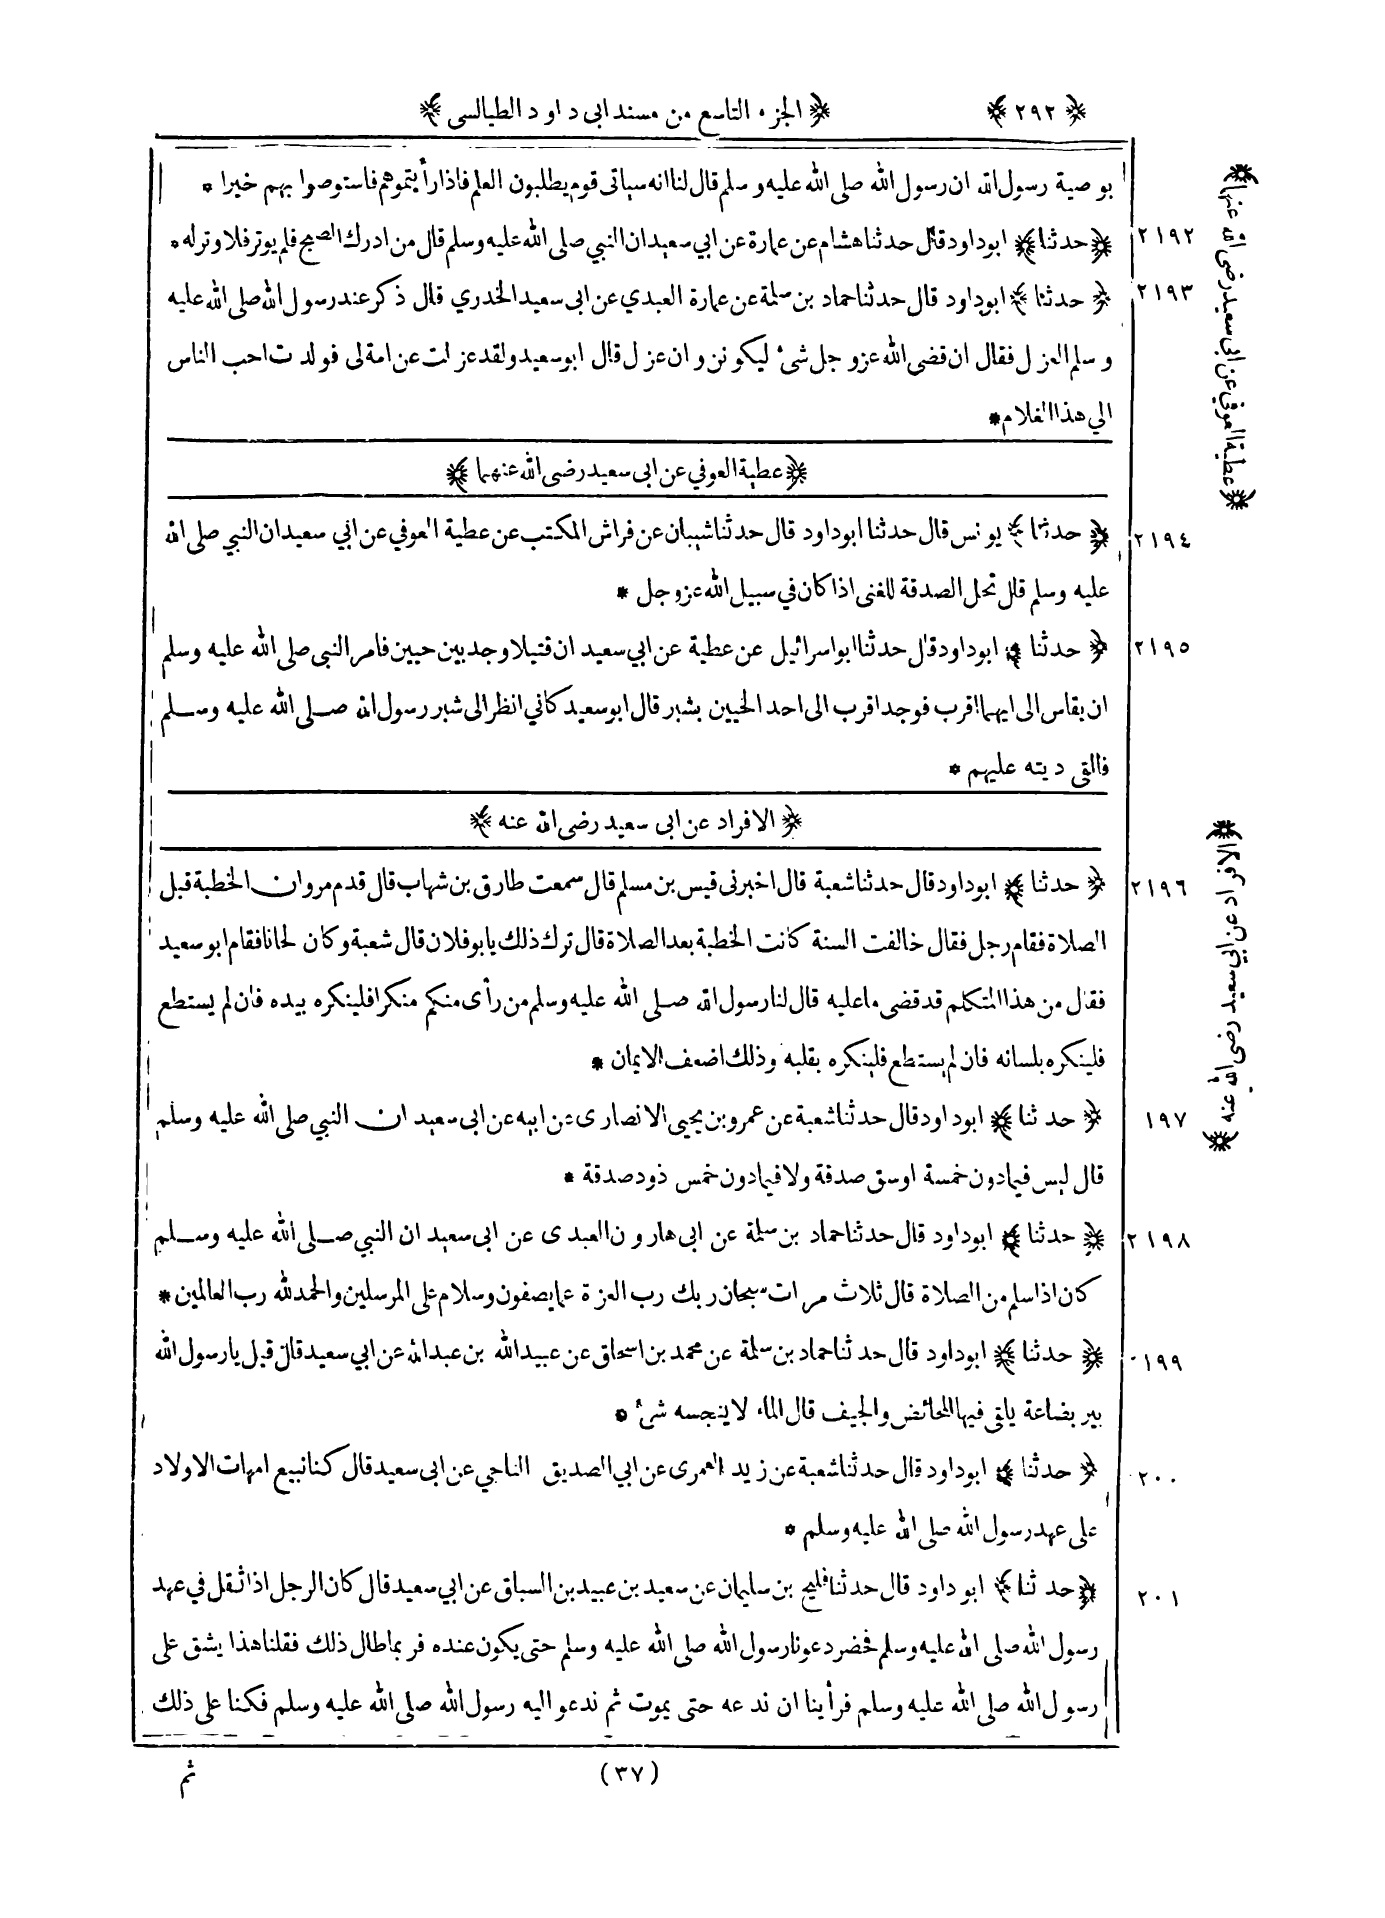 ﴿٢٩٢﴾ ﴿الجزء التاسع من مسند ابى داود الطيالسى﴾
بوصية رسول الله ان رسول الله صلى الله عليه وسلم قال لنا انه سياتى قوم يطلبون العلم فاذا رأيتموهم فاستوصوا بهم خيرا *
٢١٩٢ ﴿حدثنا﴾ ابوداود قال حدثنا هشام عن عمارة عن ابي سعيد ان النبي صلى الله عليه وسلم قال من ادرك الصبح فلم يوتر فلا وتر له *
٢١٩٣ ﴿حدثنا﴾ ابوداود قال حدثنا حماد بن سلمة عن عمارة العبدي عن ابى سعيد الخدري قال ذكر عند رسول الله صلى الله عليه
وسلم العزل فقال ان قضى الله عزوجل شئ ليكونن وان عزل قال ابوسعيد ولقد عزلت عن امة لى فولدت احب الناس
الي هذا الغلام *
﴿عطية العوفي عن ابى سعيد رضى الله عنهما﴾
٢١٩٤ ﴿حدثنا﴾ يونس قال حدثنا ابوداود قال حدثنا شيبان عن فراش المكتب عن عطية العوفي عن ابي سعيد ان النبي صلى الله
عليه وسلم قال تحل الصدقة للغنى اذا كان في سبيل الله عزوجل *
٢١٩٥ ﴿حدثنا﴾ ابوداود قال حدثنا ابواسرائيل عن عطية عن ابي سعيد ان قتيلا وجد بين حيين فامر النبى صلى الله عليه وسلم
ان يقاس الى ايهما اقرب فوجد اقرب الى احد الحيين بشبر قال ابوسعيد كاني انظر الى شبر رسول الله صلى الله عليه وسلم
فالقى ديته عليهم *
﴿الافراد عن ابى سعيد رضى الله عنه﴾
٢١٩٦ ﴿حدثنا﴾ ابوداود قال حدثنا شعبة قال اخبرنى قيس بن مسلم قال سمعت طارق بن شهاب قال قدم مروان الخطبة قبل
الصلاة فقام رجل فقال خالفت السنة كانت الخطبة بعد الصلاة قال ترك ذلك يابوفلان قال شعبة وكان لحانا فقام ابوسعيد
فقال من هذا المتكلم قد قضى ماعليه قال لنا رسول الله صلى الله عليه وسلم من رأى منكم منكرا فلينكره بيده فان لم يستطع
فلينكره بلسانه فان لم يستطع فلينكره بقلبه وذلك اضعف الايمان *
١٩٧ ﴿حدثنا﴾ ابوداود قال حدثنا شعبة عن عمرو بن يحيى الانصارى عن ابيه عن ابى سعيد ان النبي صلى الله عليه وسلم
قال ليس فيمادون خمسة اوسق صدقة ولا فيمادون خمس ذود صدقة *
٢١٩٨ ﴿حدثنا﴾ ابوداود قال حدثنا حماد بن سلمة عن ابى هارون العبدى عن ابى سعيد ان النبي صلى الله عليه وسلم
كان اذا سلم من الصلاة قال ثلاث مرات سبحان ربك رب العزة عما يصفون وسلام على المرسلين والحمد لله رب العالمين *
١٩٩ ﴿حدثنا﴾ ابوداود قال حدثنا حماد بن سلمة عن محمد بن اسحاق عن عبيد الله بن عبد الله عن ابي سعيد قال قيل يا رسول الله
بير بضاعة يلقى فيها المحائض والجيف قال الماء لا ينجسه شئ *
٢٠٠ ﴿حدثنا﴾ ابوداود قال حدثنا شعبة عن زيد العمرى عن ابي الصديق الناجي عن ابى سعيد قال كنا نبيع امهات الاولاد
على عهد رسول الله صلى الله عليه وسلم *
٢٠١ ﴿حدثنا﴾ ابوداود قال حدثنا فليح بن سليمان عن سعيد بن عبيد بن السباق عن ابي سعيد قال كان الرجل اذا ثقل في عهد
رسول الله صلى الله عليه وسلم فحضر دعونا رسول الله صلى الله عليه وسلم حتى يكون عنده فربما طال ذلك فقلنا هذا يشق على
رسول الله صلى الله عليه وسلم فرأينا ان ندعه حتى يموت ثم ندعو اليه رسول الله صلى الله عليه وسلم فكنا على ذلك
(٣٧) ثم
﴿عطية العوفي عن ابى سعيد رضى الله عنهما﴾
﴿الافراد عن ابي سعيد رضى الله عنه﴾